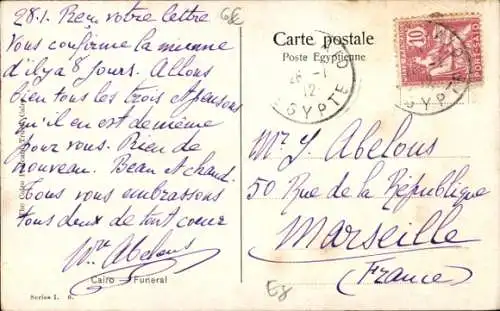 28.1. Reçu votre lettre
Vous confirme la mienne
d'il y a 8 jours. Allons
bien tous les trois & pensons
qu'il en est de même
pour vous. Rien de
nouveau. Beau et chaud.
Tous vous embrassons
tous deux de tout coeur
Abelous
Cairo Funeral
Series I. 6.
The Cairo Trust
Carte postale
Poste Egyptienne
28 - 1
12
EGYPTE
10
PORT-SAID
EGYPTE
Mr. J. Abelous
50 Rue de la République
Marseille
(France)
E8